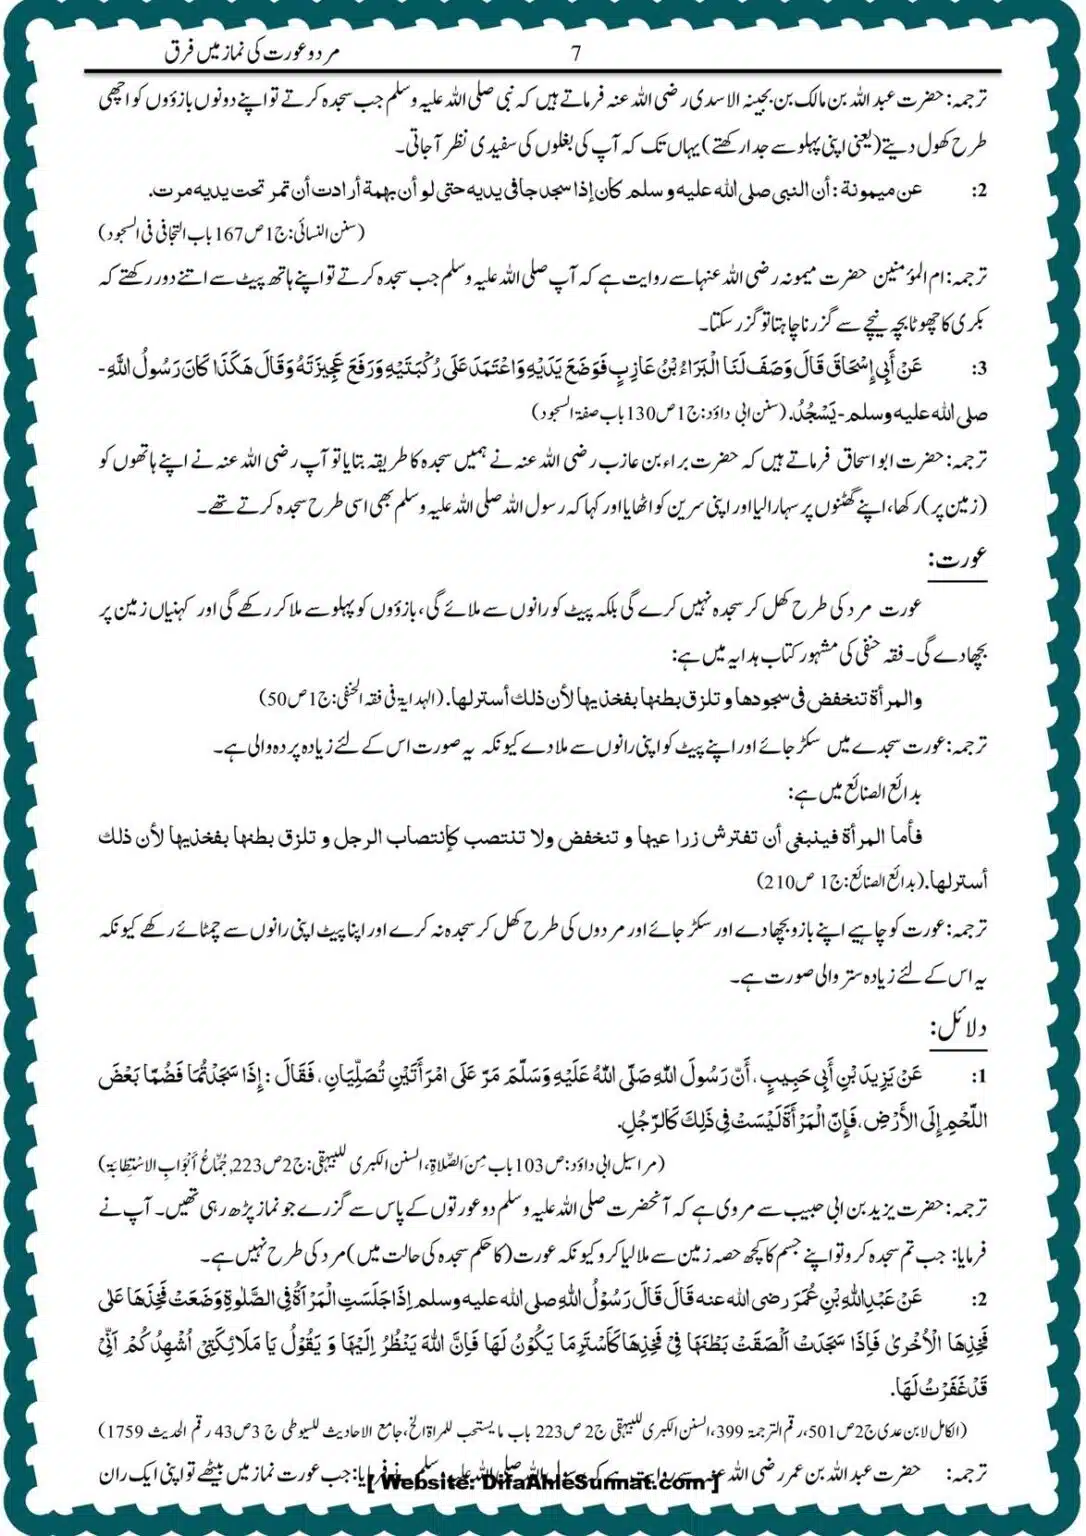 مرد و عورت کی نماز میں فرق 7
ترجمہ: حضرت عبد اللہ بن مالک بن بحینہ الاسدی رضی اللہ عنہ فرماتے ہیں کہ نبی صلی اللہ علیہ و سلم جب سجدہ کرتے تو اپنے دونوں بازؤوں کو اچھی
طرح کھول دیتے (یعنی اپنی پہلو سے جدا رکھتے) یہاں تک کہ آپ کی بغلوں کی سفیدی نظر آجاتی۔
2: عن ميمونة : أن النبي صلى الله عليه و سلم كان إذا سجد جافى يديه حتى لو أن بهمة أرادت أن تمر تحت يديه مرت.
(سنن النسائی: ج1 ص167 باب التجافی فی السجود)
ترجمہ: ام المؤمنین حضرت میمونہ رضی اللہ عنہا سے روایت ہے کہ آپ صلی اللہ علیہ و سلم جب سجدہ کرتے تو اپنے ہاتھ پیٹ سے اتنے دور رکھتے کہ
بکری کا چھوٹا بچہ نیچے سے گزرنا چاہتا تو گزر سکتا۔
3: عَنْ أَبِي إِسْحَاقَ قَالَ وَصَفَ لَنَا الْبَرَاءُ بْنُ عَازِبٍ فَوَضَعَ يَدَيْهِ وَاعْتَمَدَ عَلَى رُكْبَتَيْهِ وَرَفَعَ عَجِيزَتَهُ وَقَالَ هَكَذَا كَانَ رَسُولُ اللَّهِ -
صلى الله عليه وسلم- يَسْجُدُ. (سنن ابی داؤد: ج1 ص130 باب صفۃ السجود)
ترجمہ: حضرت ابو اسحاق فرماتے ہیں کہ حضرت براء بن عازب رضی اللہ عنہ نے ہمیں سجدہ کا طریقہ بتایا تو آپ رضی اللہ عنہ نے اپنے ہاتھوں کو
(زمین پر) رکھا، اپنے گھٹنوں پر سہارا لیا اور اپنی سرین کو اٹھایا اور کہا کہ رسول اللہ صلی اللہ علیہ و سلم بھی اسی طرح سجدہ کرتے تھے۔
عورت:
عورت مرد کی طرح کھل کر سجدہ نہیں کرے گی بلکہ پیٹ کو رانوں سے ملائے گی، بازؤوں کو پہلو سے ملا کر رکھے گی اور کہنیاں زمین پر
بچھا دے گی۔ فقہ حنفی کی مشہور کتاب ہدایہ میں ہے:
والمرأة تنخفض في سجودها و تلزق بطنها بفخذيها لأن ذلك أستر لها. (الہدایۃ فی فقہ الحنفی: ج1 ص50)
ترجمہ: عورت سجدے میں سکڑ جائے اور اپنے پیٹ کو اپنی رانوں سے ملا دے کیونکہ یہ صورت اس کے لئے زیادہ پردہ والی ہے۔
بدائع الصنائع میں ہے:
فأما المرأة فينبغي أن تفترش زرا عيها و تنخفض ولا تنتصب كإنتصاب الرجل و تلزق بطنها بفخذيها لأن ذلك
أستر لها. (بدائع الصنائع: ج1 ص210)
ترجمہ: عورت کو چاہیے اپنے بازو بچھا دے اور سکڑ جائے اور مردوں کی طرح کھل کر سجدہ نہ کرے اور اپنا پیٹ اپنی رانوں سے چمٹائے رکھے کیونکہ
یہ اس کے لئے زیادہ ستر والی صورت ہے۔
دلائل:
1: عَنْ يَزِيدَ بْنِ أَبِي حَبِيبٍ ، أَنّ رَسُولَ اللهِ صَلّى اللهُ عَلَيْهِ وَسَلّمَ مَرّ عَلَى امْرَأَتَيْنِ تُصَلِّيَانِ ، فَقَالَ : إِذَا سَجَدْتُمَا فَضُمّا بَعْضَ
اللّحْمِ إِلَى الأَرْضِ ، فَإِنّ الْمَرْأَةَ لَيْسَتْ فِي ذَلِكَ كَالرّجُلِ.
(مراسیل ابی داؤد: ص103 باب مِنَ الصَّلاةِ، السنن الکبری للبیہقی: ج2 ص223، جُمَّاعُ أَبْوَابِ الاسْتِطَابَة)
ترجمہ: حضرت یزید بن ابی حبیب سے مروی ہے کہ آنحضرت صلی اللہ علیہ و سلم دو عورتوں کے پاس سے گزرے جو نماز پڑھ رہی تھیں۔ آپ نے
فرمایا: جب تم سجدہ کرو تو اپنے جسم کا کچھ حصہ زمین سے ملا لیا کرو کیونکہ عورت (کا حکم سجدہ کی حالت میں) مرد کی طرح نہیں ہے۔
2: عَنْ عَبْدِ اللهِ بْنِ عُمَرَ رضی الله عنه قَالَ قَالَ رَسُوْلُ اللهِ صلى الله عليه وسلم إِذَا جَلَسَتِ الْمَرْأَةُ فِي الصَّلٰوةِ وَضَعَتْ فَخِذَهَا عَلٰى
فَخِذِهَا الْأُخْرٰى فَإِذَا سَجَدَتْ أَلْصَقَتْ بَطْنَهَا فِيْ فَخِذِهَا كَأَسْتَرِ مَا يَكُوْنُ لَهَا فَإِنَّ اللهَ يَنْظُرُ إِلَيْهَا وَ يَقُوْلُ يَا مَلَائِكَتِيْ أُشْهِدُكُمْ أَنِّيْ
قَدْ غَفَرْتُ لَهَا.
(الکامل لابن عدی ج2 ص501، رقم الترجمۃ 399، السنن الکبری للبیہقی ج2 ص223 باب ما یستحب للمراۃ الخ، جامع الاحادیث للسیوطی ج 3 ص43 رقم الحدیث 1759)
ترجمہ: حضرت عبد اللہ بن عمر رضی اللہ عنہ سے روایت ہے کہ رسول اللہ صلی اللہ علیہ و سلم نے فرمایا: جب عورت نماز میں بیٹھے تو اپنی ایک ران
[ Website: DifaAhleSunnat.com ]